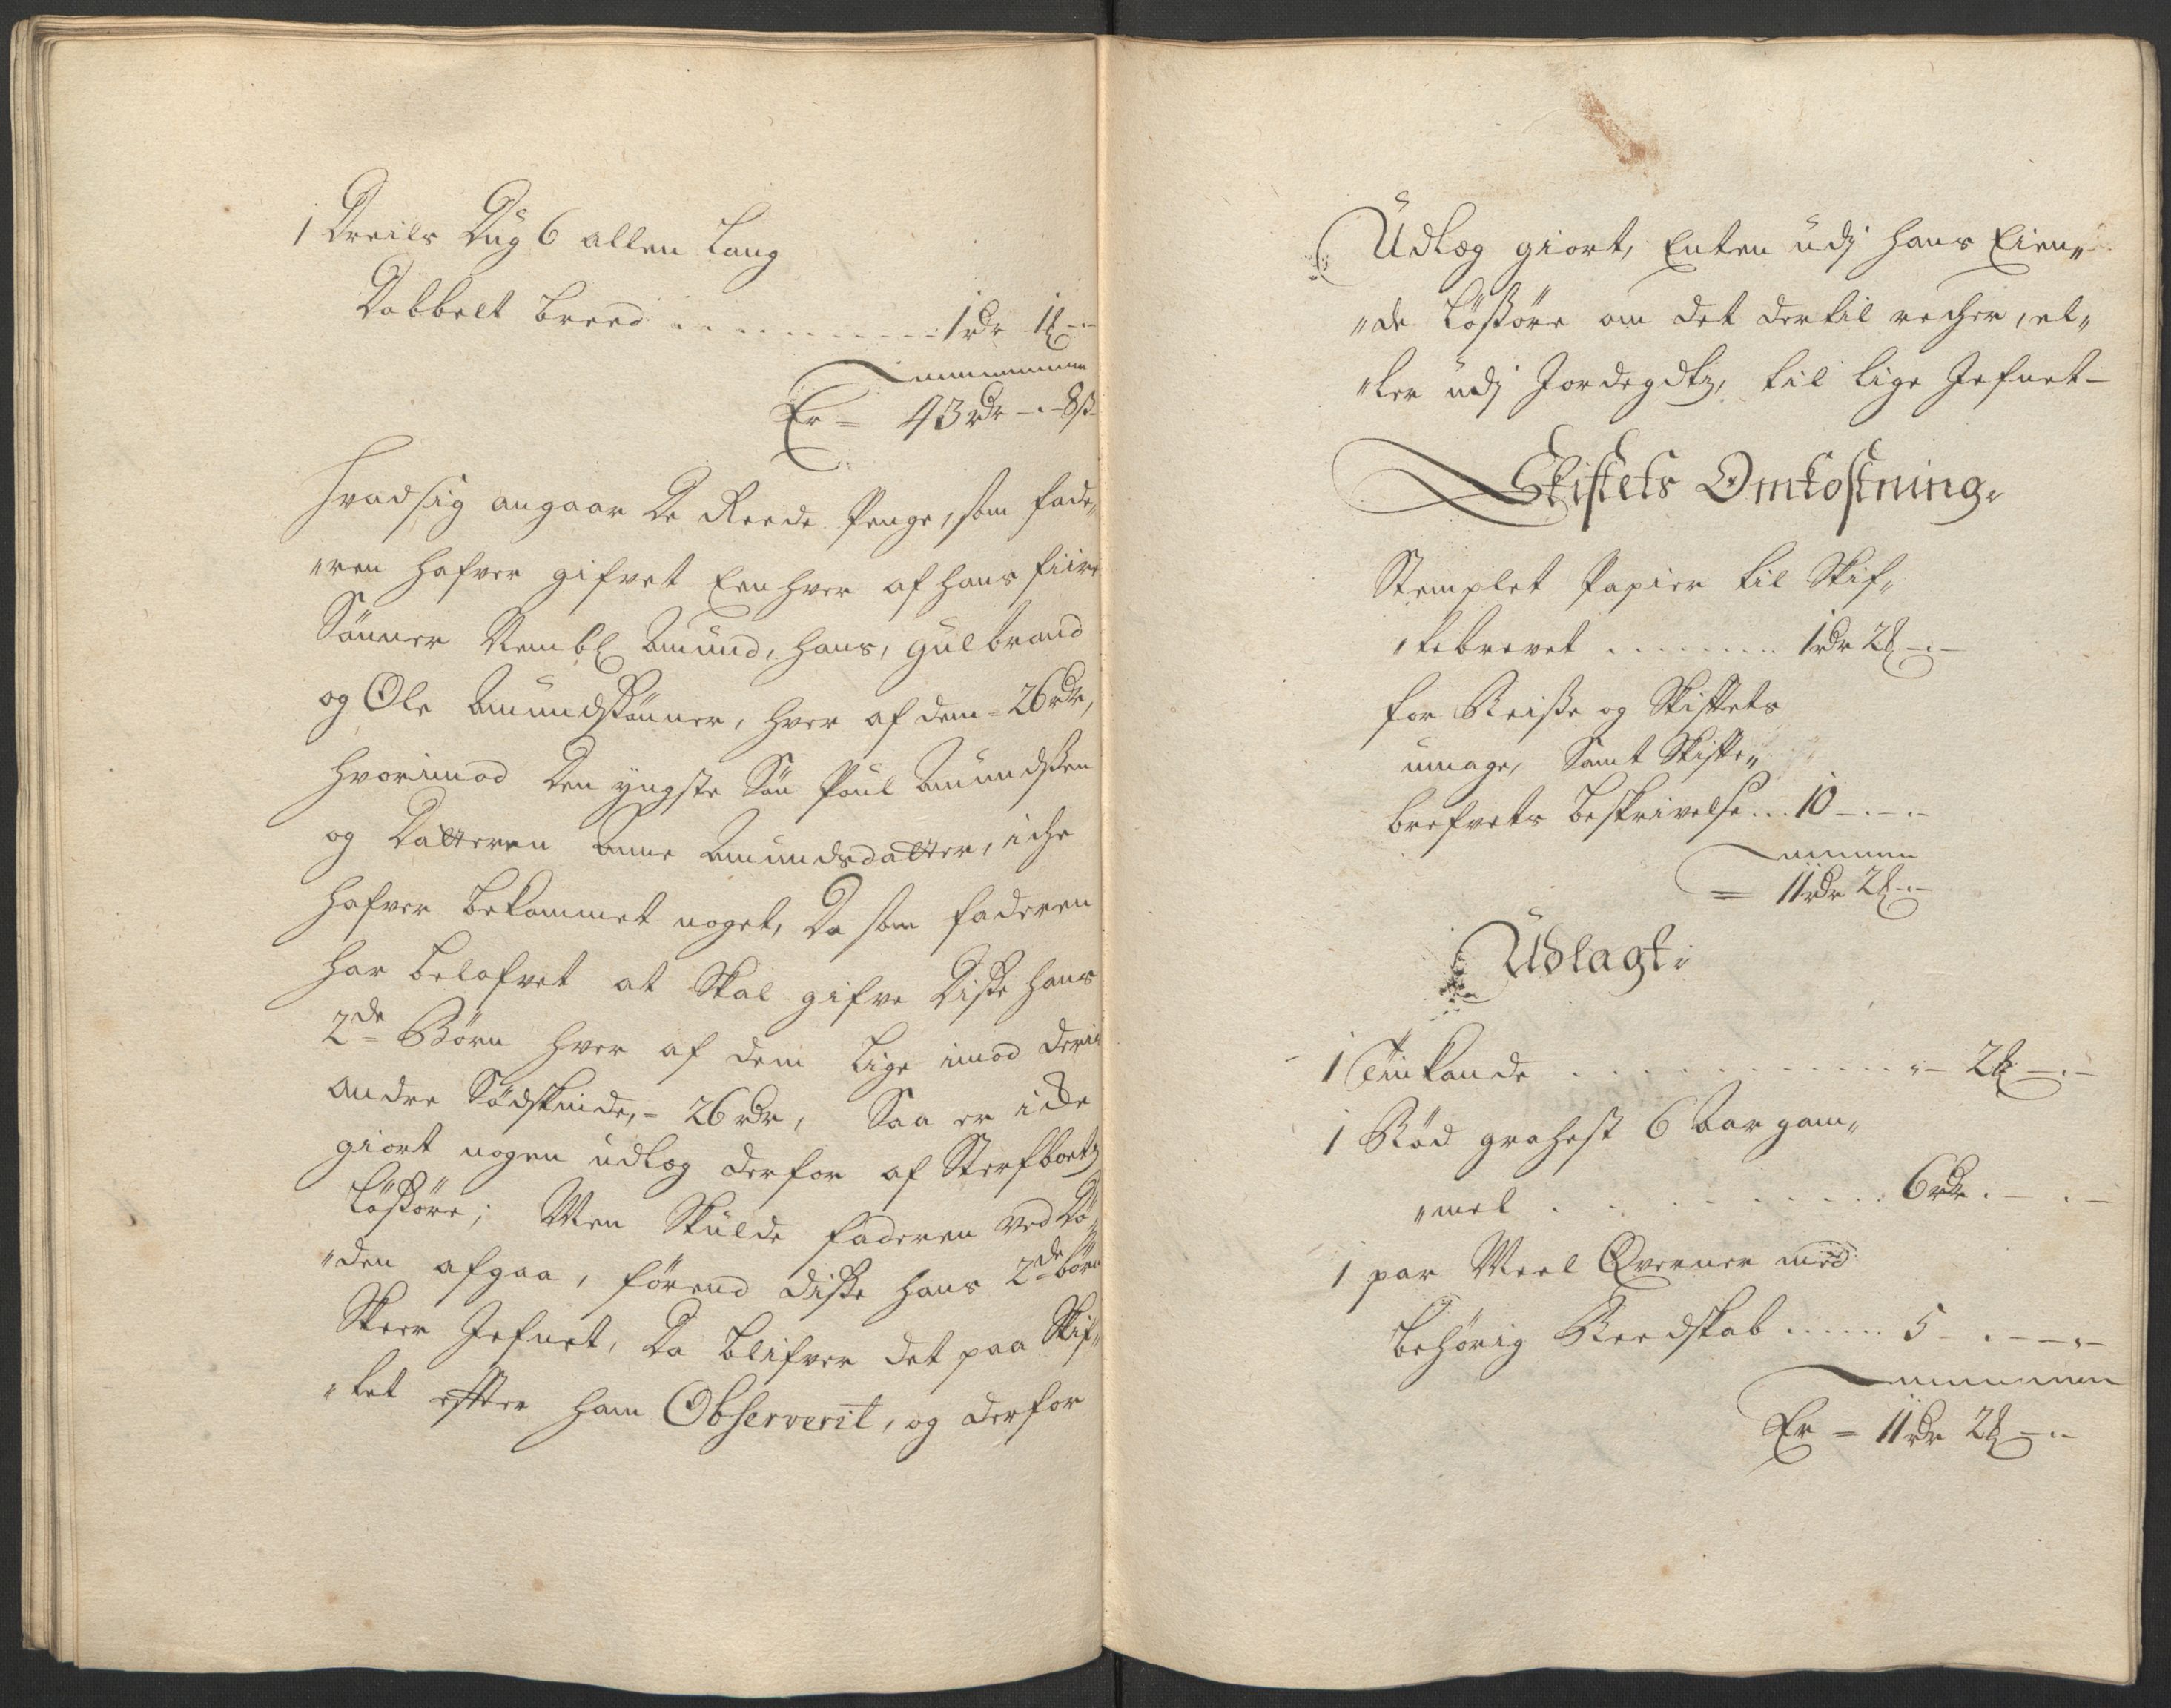 1 Dreils Dug 6 allen Lang
Dobbelt breed . . . . . . . . . 1 rdr 1 ℔ -.-
Er = 43 rdr -.- 8 ß
Hvad sig angaar De Reede Penge, som fade„
„ren hafver gifvet Een hver af hans fiire
Sønner Nembl Amund, Hans, Gulbrand
og Ole Amundssønner, hver af dem = 26 rdr,
hvorimod Den yngste Søn Poul Amundssen
og Datteren Anne Amundsdatter, iche
hafver bekommet noget, Da som faderen
har belofvet at Skal gifve Disse hans
2de Børn hver af dem Lige imod deris
andre Sødskinde, = 26 rdr, Saa er iche
giort nogen udlæg derfor af Sterfboetz
Løssøre; Men Skulde faderen ved Dø„
„den afgaa, førend disse hans 2de børn
Skeer Jefnet, Da blifver det paa Skif„
„tet effter ham Observerit, og derfor
Udlæg giort, Enten udj hans Eien„
„de Løssøre om det dertil recher, el„
„ler udj Jordegdtz, til lige Jefnet-
Skiftets Omkostning.
Stemplet Papier til Skif„
„tebrevet . . . . . . . . 1 rdr 2 ℔ -.-
for Reisse og Skifftets
umage, Samt Skiffte„
brefvets beskrivelse . . . 10 -.-.-
= 11 rdr 2 ℔ -.-
Udlagt.
1 Tinkande . . . . . . . . . . . . . - 2 ℔ -.-
1 Rød grahest 6 Aar gam„
„mel . . . . . . . . . 6 rdr . - . -
1 par Meel Qverner med
behørig Reedskab . . . . . . 5 - . - - . -
Er = 11 rdr 2 ℔ -.-